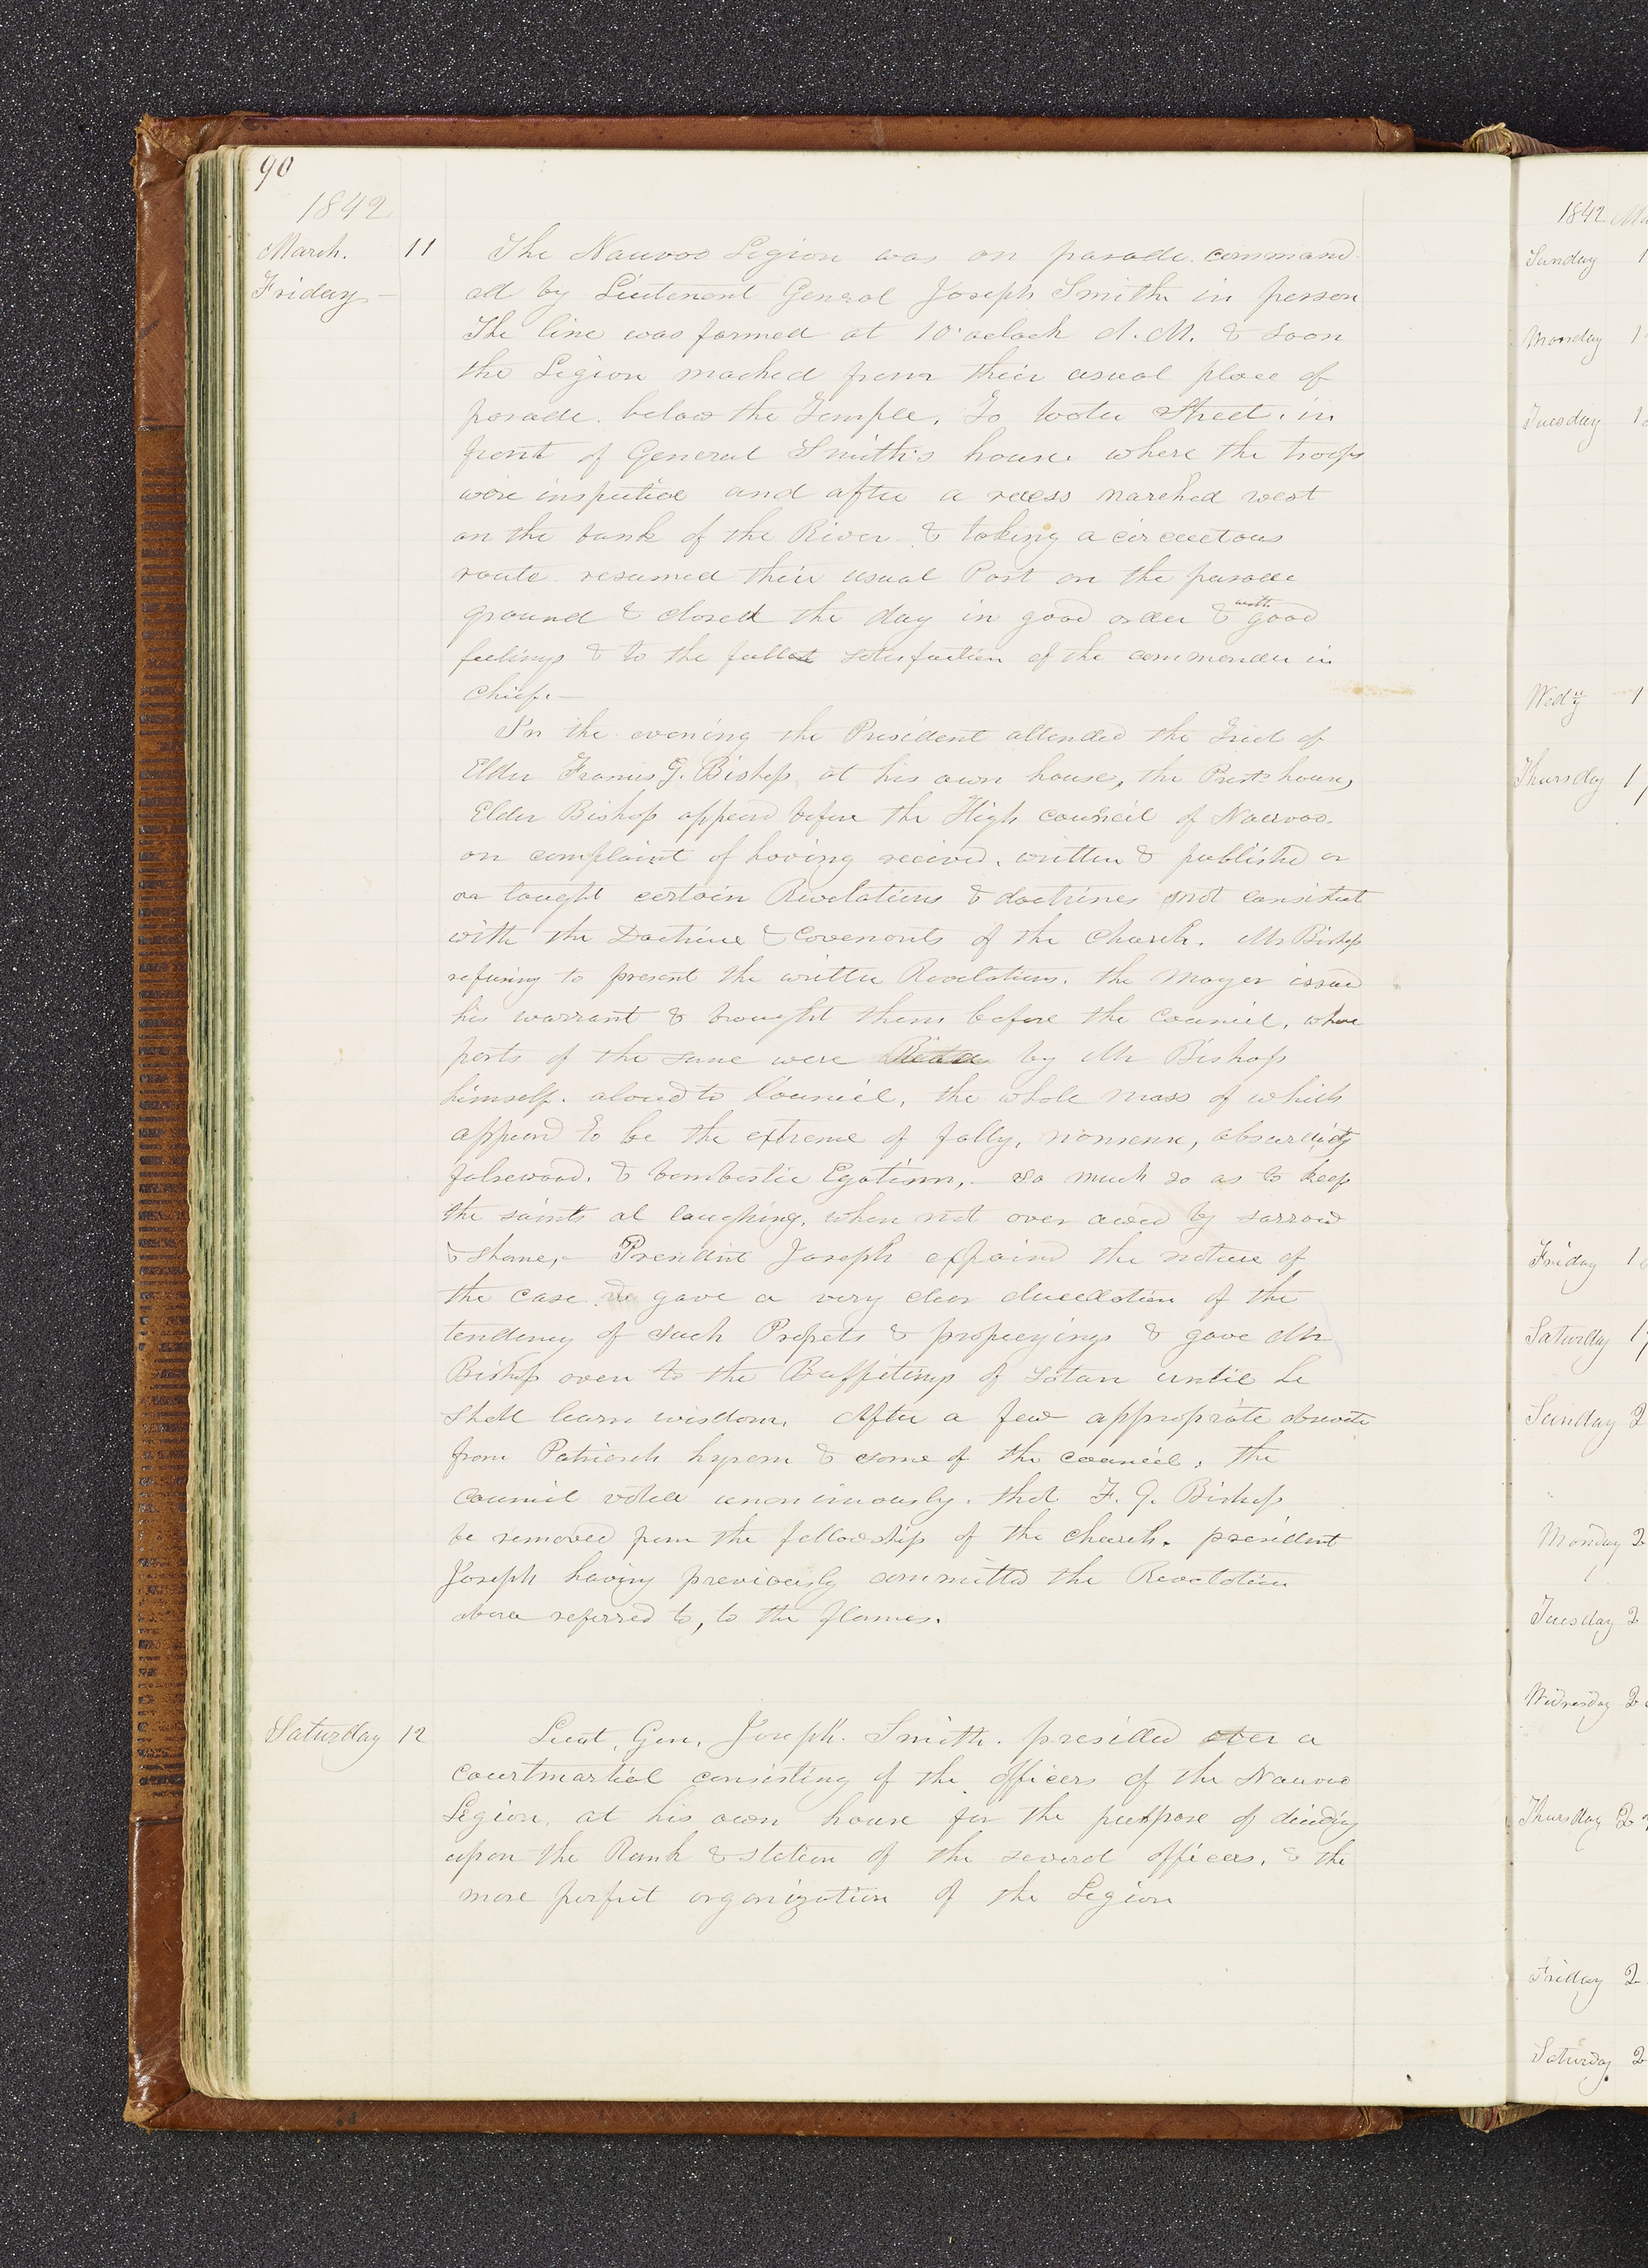 90
1842
March. 11 The Nauvoo Legion was on parade. command-
Friday- ed by Lieutenant General Joseph Smith in person
The line was formed at 10 oclock A.M. & soon
the Legion mached from their usual place of
parade. below the Temple, To Water Street. in
front of General Smith's house. where the troops
were inspected and after a recess marched west
on the bank of the River & taking a circuetous
route resumed their usual Post on the parade
ground & closed the day in good order & with good
feelings & to the fullest satisfaction of the commander in
Chief.—
In the evening the President attended the Trial of
Elder Francis G. Bishop, at his own house, the Prests house,
Elder Bishop appeard before the High council of Nauvoo.
on complaint of having recived. written & published or
or taught certain Revelations & doctrines not consistent
with the Doctrine & Covenants of the Church. Mr Bishop
refusing to present the written Revelations. the Mayor issued
his warrant & brought them before the Council, where
parts of the same were Read by Mr Bishop
himself. aloud to Council, the whole mass of which
appeard to be the extreme of folly, nonsense, absurdity
falsewood. & bombastic Egotism,- so much so as to keep
the saints at laughing. when not over awed by sorrow
& shame,- President Joseph explaind the nature of
the case & gave a very clear elucidation of the
tendency of such Propets & propecyings & gave Mr
Bishop over to the Buffetings of Satan until he
shall learn wisdom. After a few appropriate obsevats
from Patriarch hyrom & some of the council. the
council voted unanimously. that F. G. Bishop
be removed from the fellowship of the church. president
Joseph having previously committed the Revelation
above referred to, to the flames.
Saturday 12 Lieut. Gen. Joseph. Smith. presided over a
courtmartial consisting of the officers of the Nauvoo
Legion. at his own house for the purpose of deciding
upon the Rank & station of the several officers. & the
more perfect organization of the Legion
1842
Sunday 1
Monday 1
Tuesday 1
Wedy 1
Thursday 1
Friday 1
Saturday 1
Sunday 2
Monday 2
Tuesday 2
Wednesday 2
Thursday 2
Friday 2
Saturday 2